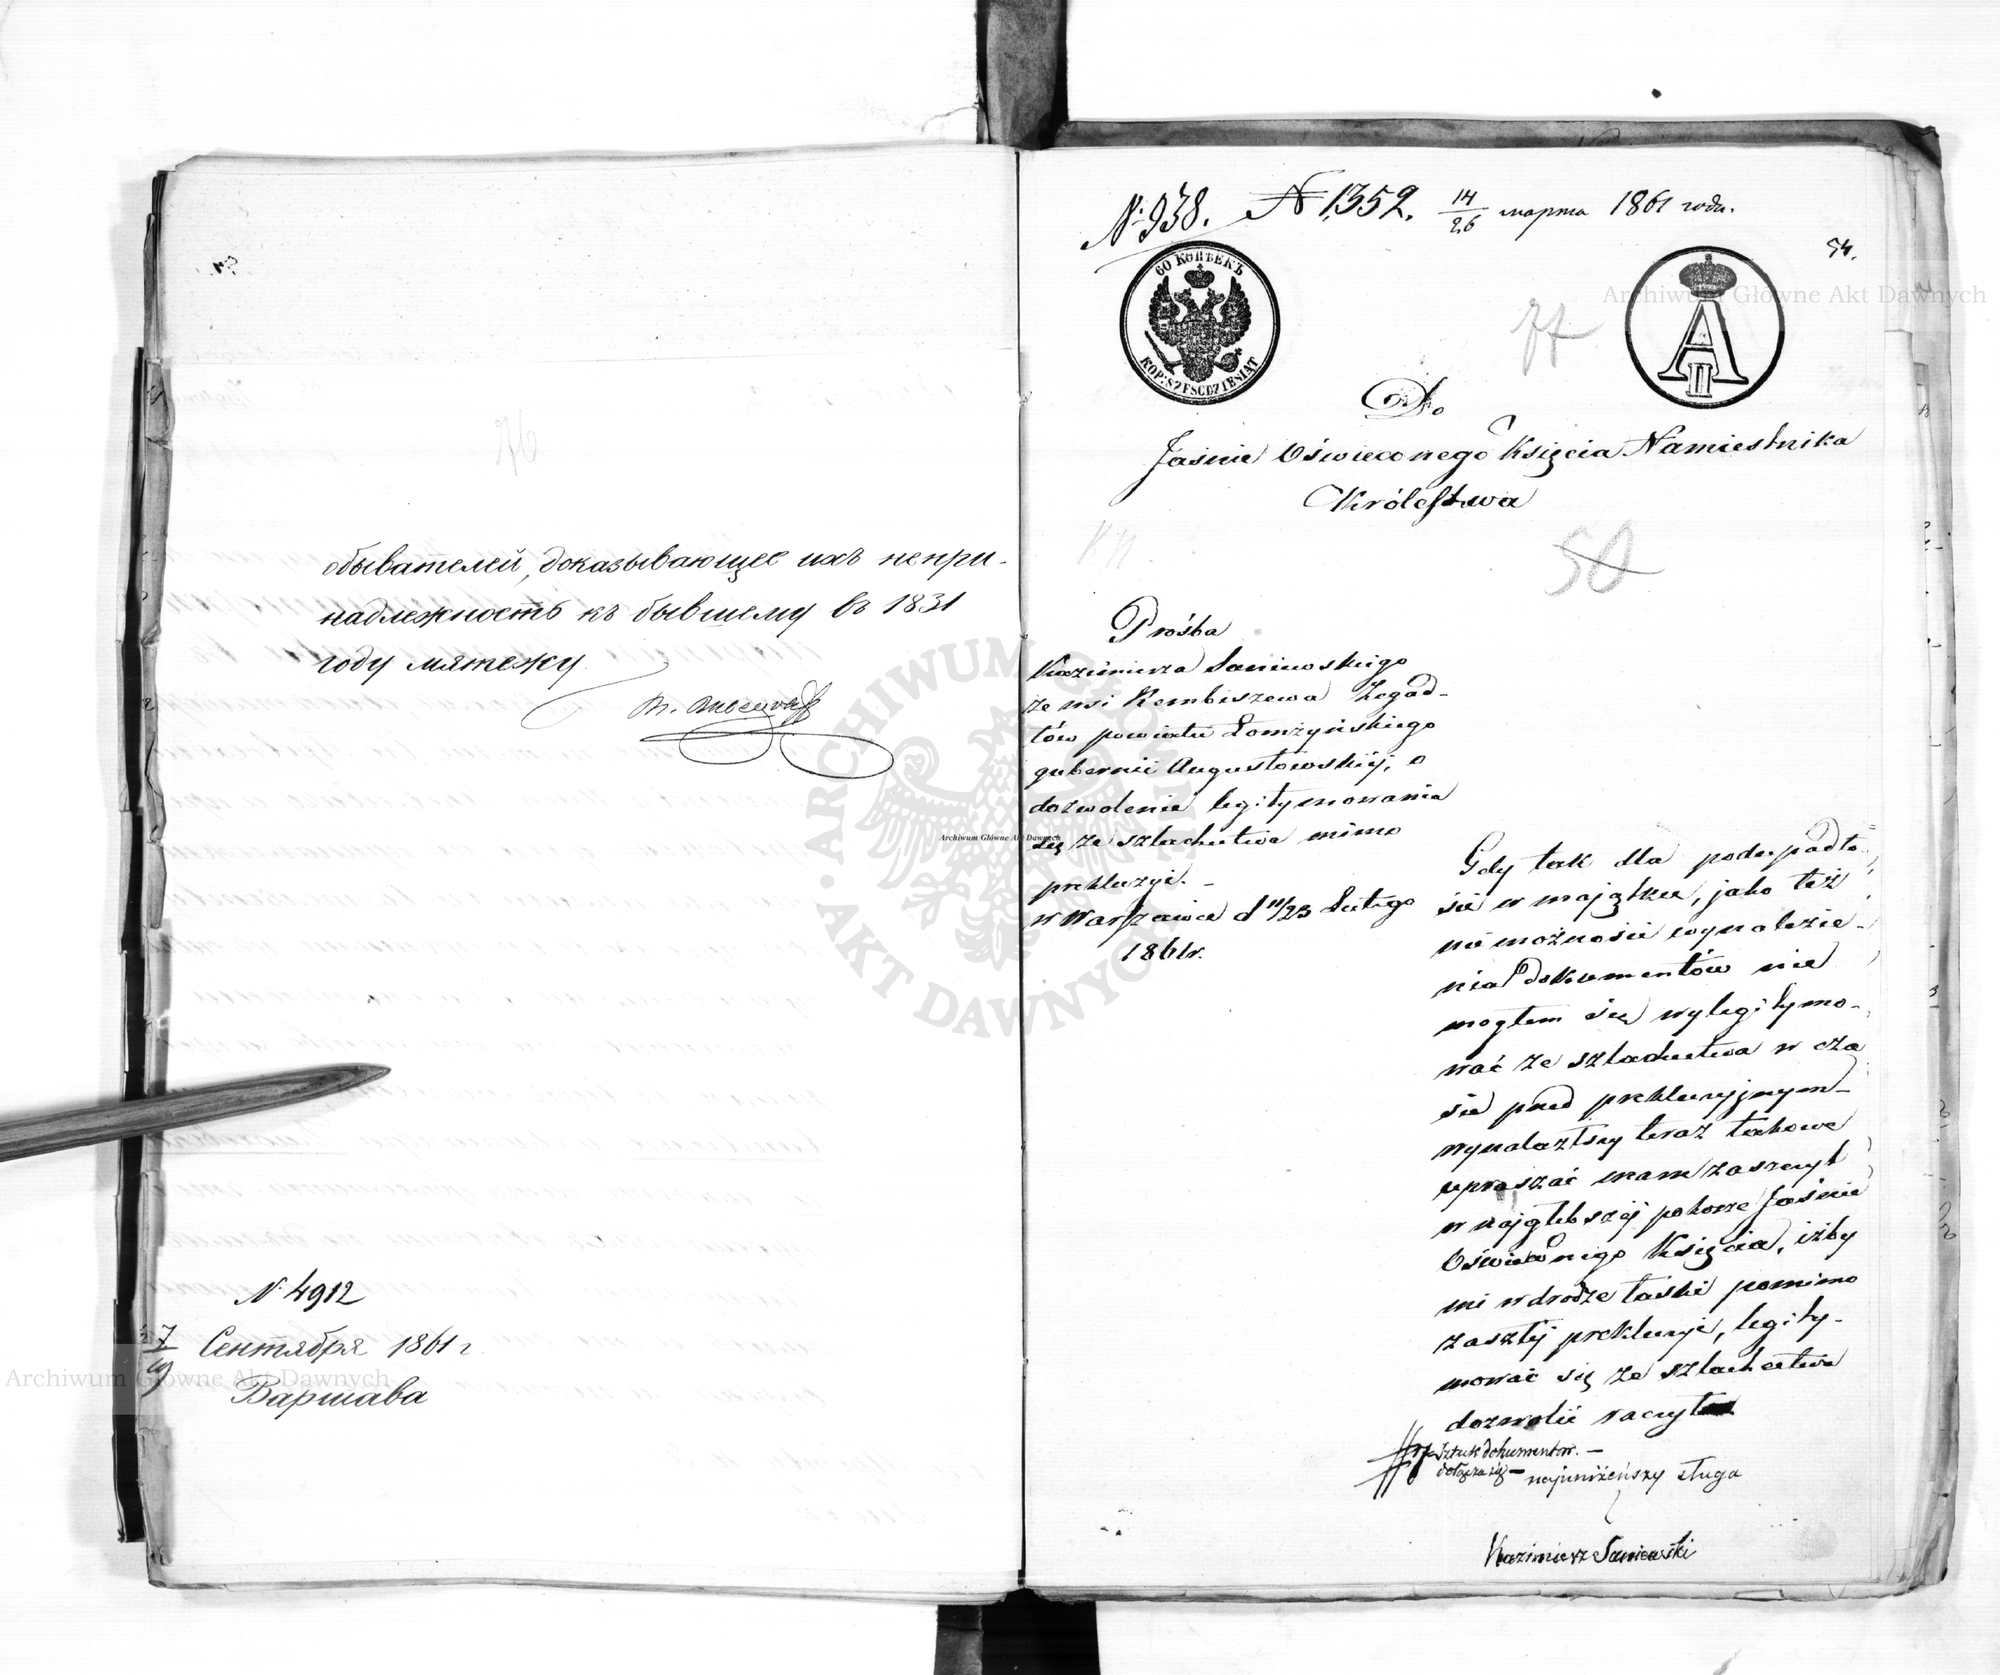 обывателей, доказывающее ихъ непри-
надлежность къ бывшему въ 1831
году мятежу.
N 4912
7/19 Сентября 1861 г.
Варшава
N. 938. N 1352. 14/26 марта 1861 года.
54.
60 КОПѢЕКЪ
KOP: SZESĆDZIESIĄT
A II
77
Do
Jaśnie Oświeconego Księcia Namiestnika
Królestwa
50
Prośba
Kazimierza Saniewskiego
ze wsi Rembiszewa Zegad-
łów powiatu Łomżyńskiego
gubernii Augustowskiéj, o
dozwolenie legitymowania
się ze szlachectwa mimo
prekluzyi. –
w Warszawie d 11/23 Lutego
1861r.
Gdy tak dla podupadło-
ści w majątku, jako też
niemożności wynalezie-
nia Dokumentów nie
mogłem się wylegitymo-
wać ze szlachectwa w cza
sie przed prekluzyjnym –
wynalazłszy teraz takowe
upraszać mam zaszczyt
w najgłębszéj pokorze Jaśnie
Oświeconego Księcia, iżby
mi w drodze łaski pomimo
zaszłéj prekluzyi, legity-
mować się ze szlachectwa
dozwolić raczył
sztuk dokumentów. –
dołącza się – najuniżeńszy sługa
Kazimierz Saniewski
Archiwum Główne Akt Dawnych
Archiwum Główne Akt Dawnych
Archiwum Główne Akt Dawnych
ARCHIWUM GŁÓWNE AKT DAWNYCH